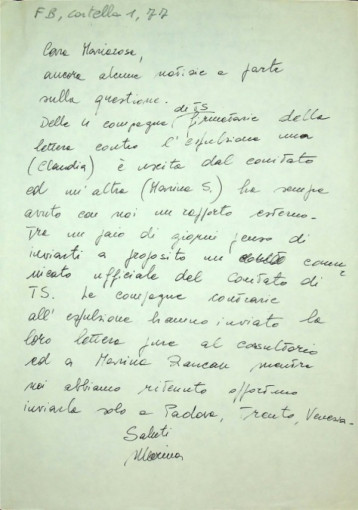 FB, cartella 1, 77
Cara Mariarosa,
ancora alcune notizie a parte
sulla questione.
Delle 4 compagne di TS firmatarie della
lettera contro l'espulsione una
(Claudia) è uscita dal comitato
ed un'altra (Marina S.) ha sempre
avuto con noi un rapporto esterno.
Tra un paio di giorni penso di
inviarti a proposito un comu-
nicato ufficiale del Comitato di
TS. Le compagne contrarie
all'espulsione hanno inviato la
loro lettera pure al consultorio
ed a Marina Zancan mentre
noi abbiamo ritenuto opportuno
inviarla solo a Padova, Trento, Venezia.
Saluti
Marina